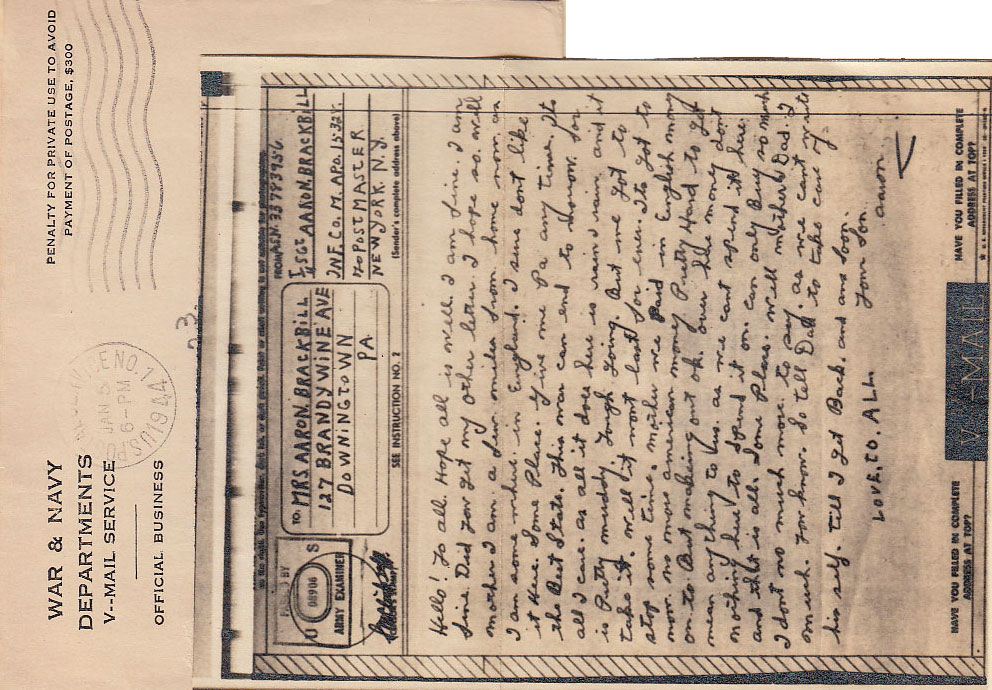 WAR & NAVY
DEPARTMENTS
V--MAIL SERVICE
OFFICIAL BUSINESS
PENALTY FOR PRIVATE USE TO AVOID
PAYMENT OF POSTAGE, $300
ENO. 1
JAN 8
6-PM
1944
PASSED BY
U S
08906
ARMY EXAMINER
TO MRS AARON. BRACKBILL
127 BRANDYWINE AVE
DOWNINGTOWN
PA.
SEE INSTRUCTION NO. 2
FROM ASN. 33793956.
SGT AARON. BRACKBILL
INF. Co. M. APO. 15321.
% POSTMASTER
NEW YORK. N.Y.
(Sender's complete address above)
Hello! To all. Hope all is well. I am fine. I am
fine. Did you get my other letter I hope so. well
mother I am. a few miles from home now. as
I am some where. in England. I sure dont like
it Here. Some Place. give me Pa any time. Its
the Best State. This war can end to morrow. for
all I care. as all it does here is rain & rain and it
is Pretty muddy. Tough Going. But we Got to
take it. well it wont last for ever. Its Got to
stop some time. mother we Paid in English money
now. no more american money. Pretty Hard to Get
on to But making out ok. over Here money dont
mean any thing to us. as we cant spend it here.
nothing here to spend it on. can only Buy so much
and that is all. Some Place. well mother & Dad. I
dont no much more. to say. as we cant write
much. you know. So tell Dad. to take care of
his self. till I get Back. and and soon.
Your Son.
aaron
LOVE. TO. ALL
HAVE YOU FILLED IN COMPLETE
ADDRESS AT TOP?
V - MAIL
HAVE YOU FILLED IN COMPLETE
ADDRESS AT TOP?